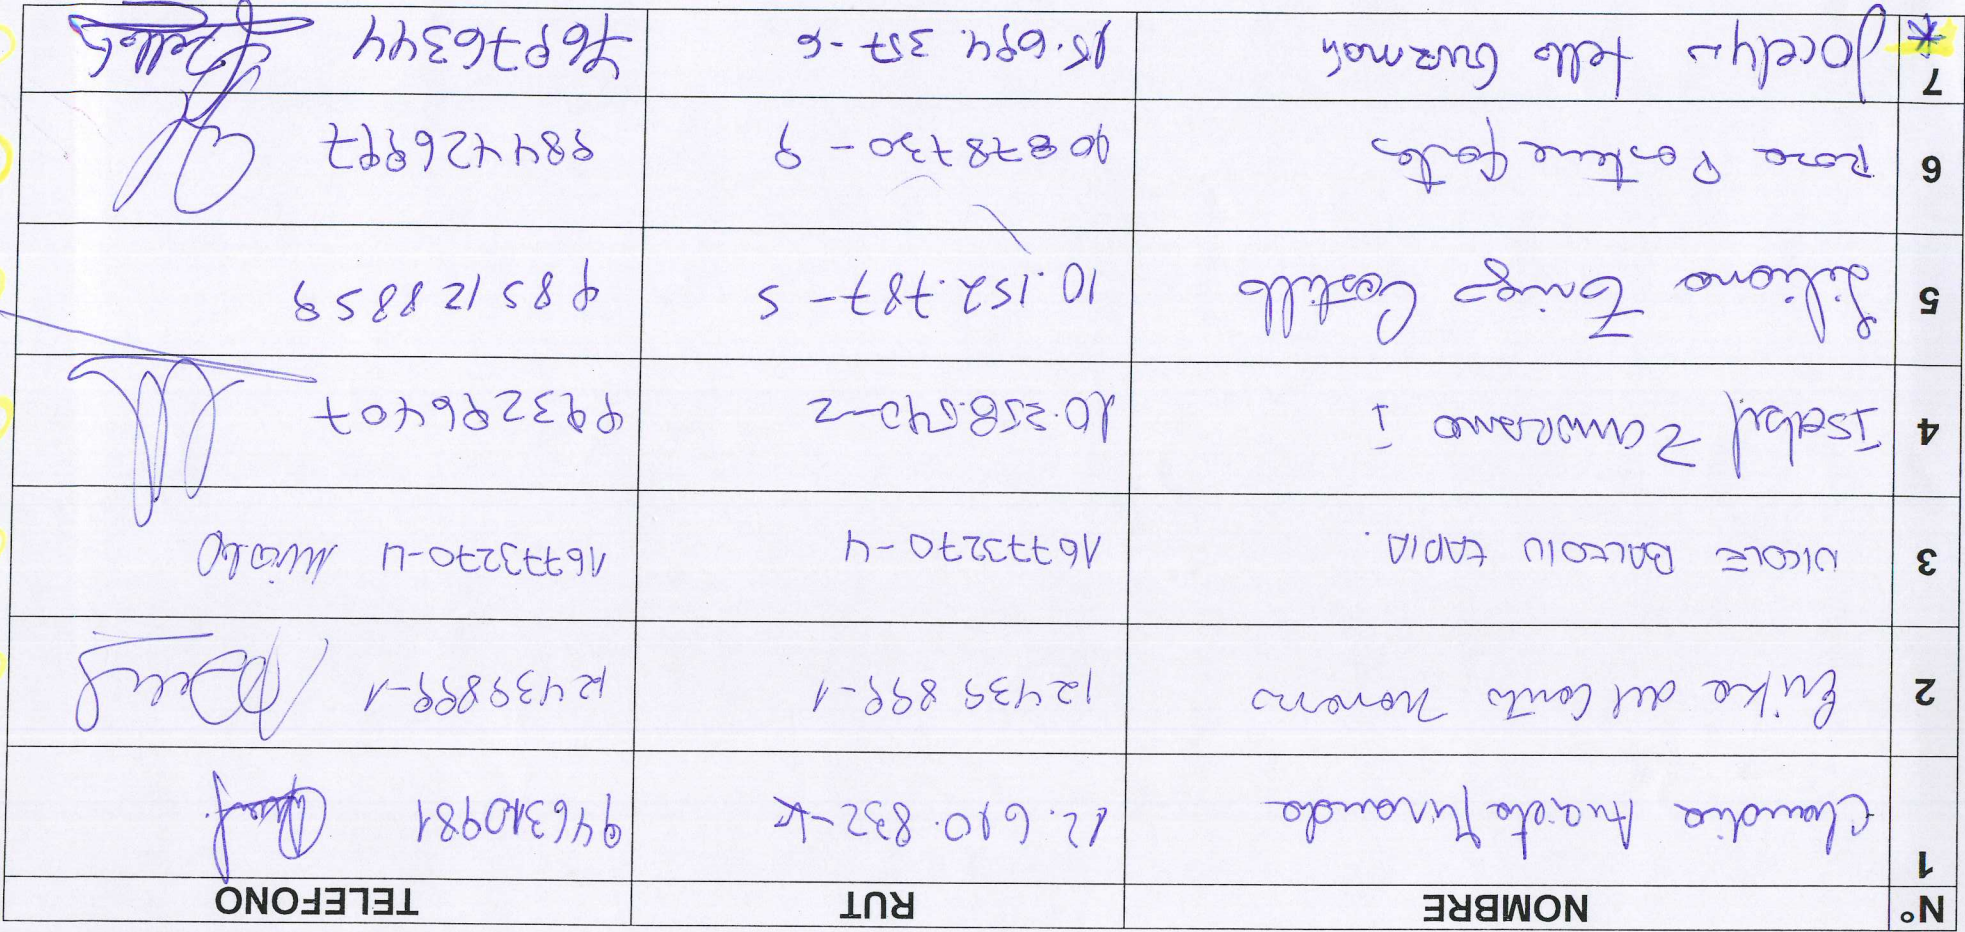 N° NOMBRE RUT TELEFONO
1 Claudia Araieta Miranda 12.610.832-K 946310981
2 Erika del Canto 12439899-1 12439899-1
3 NICOLE TAPIA. 16773270-4 16773270-4 Nicole
4 Isabel Zamorano I 10.358.542-2 993296407
5 Liliana Zuñiga Castillo 10.152.787-5 985128859
6 Rosa 10878730-9 984426997
7 * Jocelyn Tello Guzmán 15.694.357-6 76976344